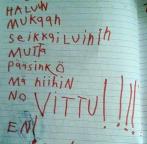 HALUVN
MUKAAN
SEIKKAILUIHIH
MUTTA
PÄÄSINKÖ
MÄ NIIHIN
NO VITTU!!!!
EN!